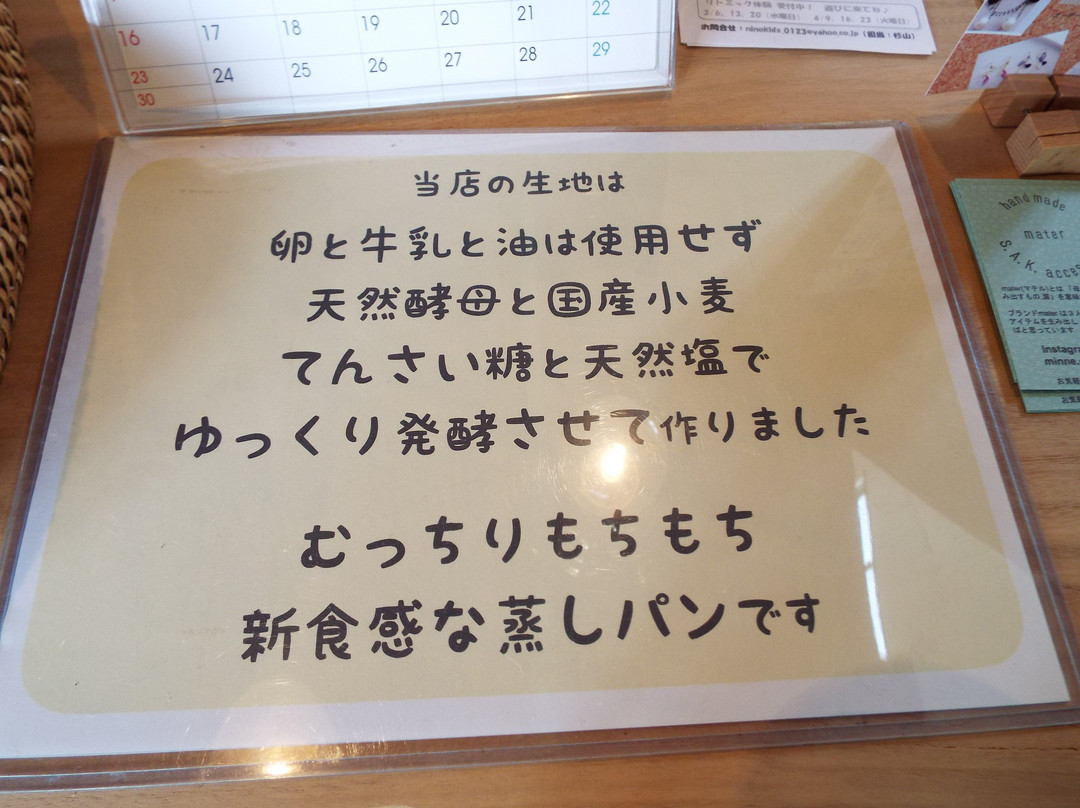 16 17 18 19 20 21 22
23 24 25 26 27 28 29
30
リトミック体験 受付中! 遊びに来てね♪
4/9.16.23(火曜日)
お問合せ:
(担当:杉山)
当店の生地は
卵と牛乳と油は使用せず
天然酵母と国産小麦
てんさい糖と天然塩で
ゆっくり発酵させて作りました
むっちりもちもち
新食感な蒸しパンです
hand made
mater
S.A.K.
mater(マテル)とは
ブランドmaterは3人
アイテムを生み出し
ばと思っています
Instagra
minne.
お気軽
お気軽